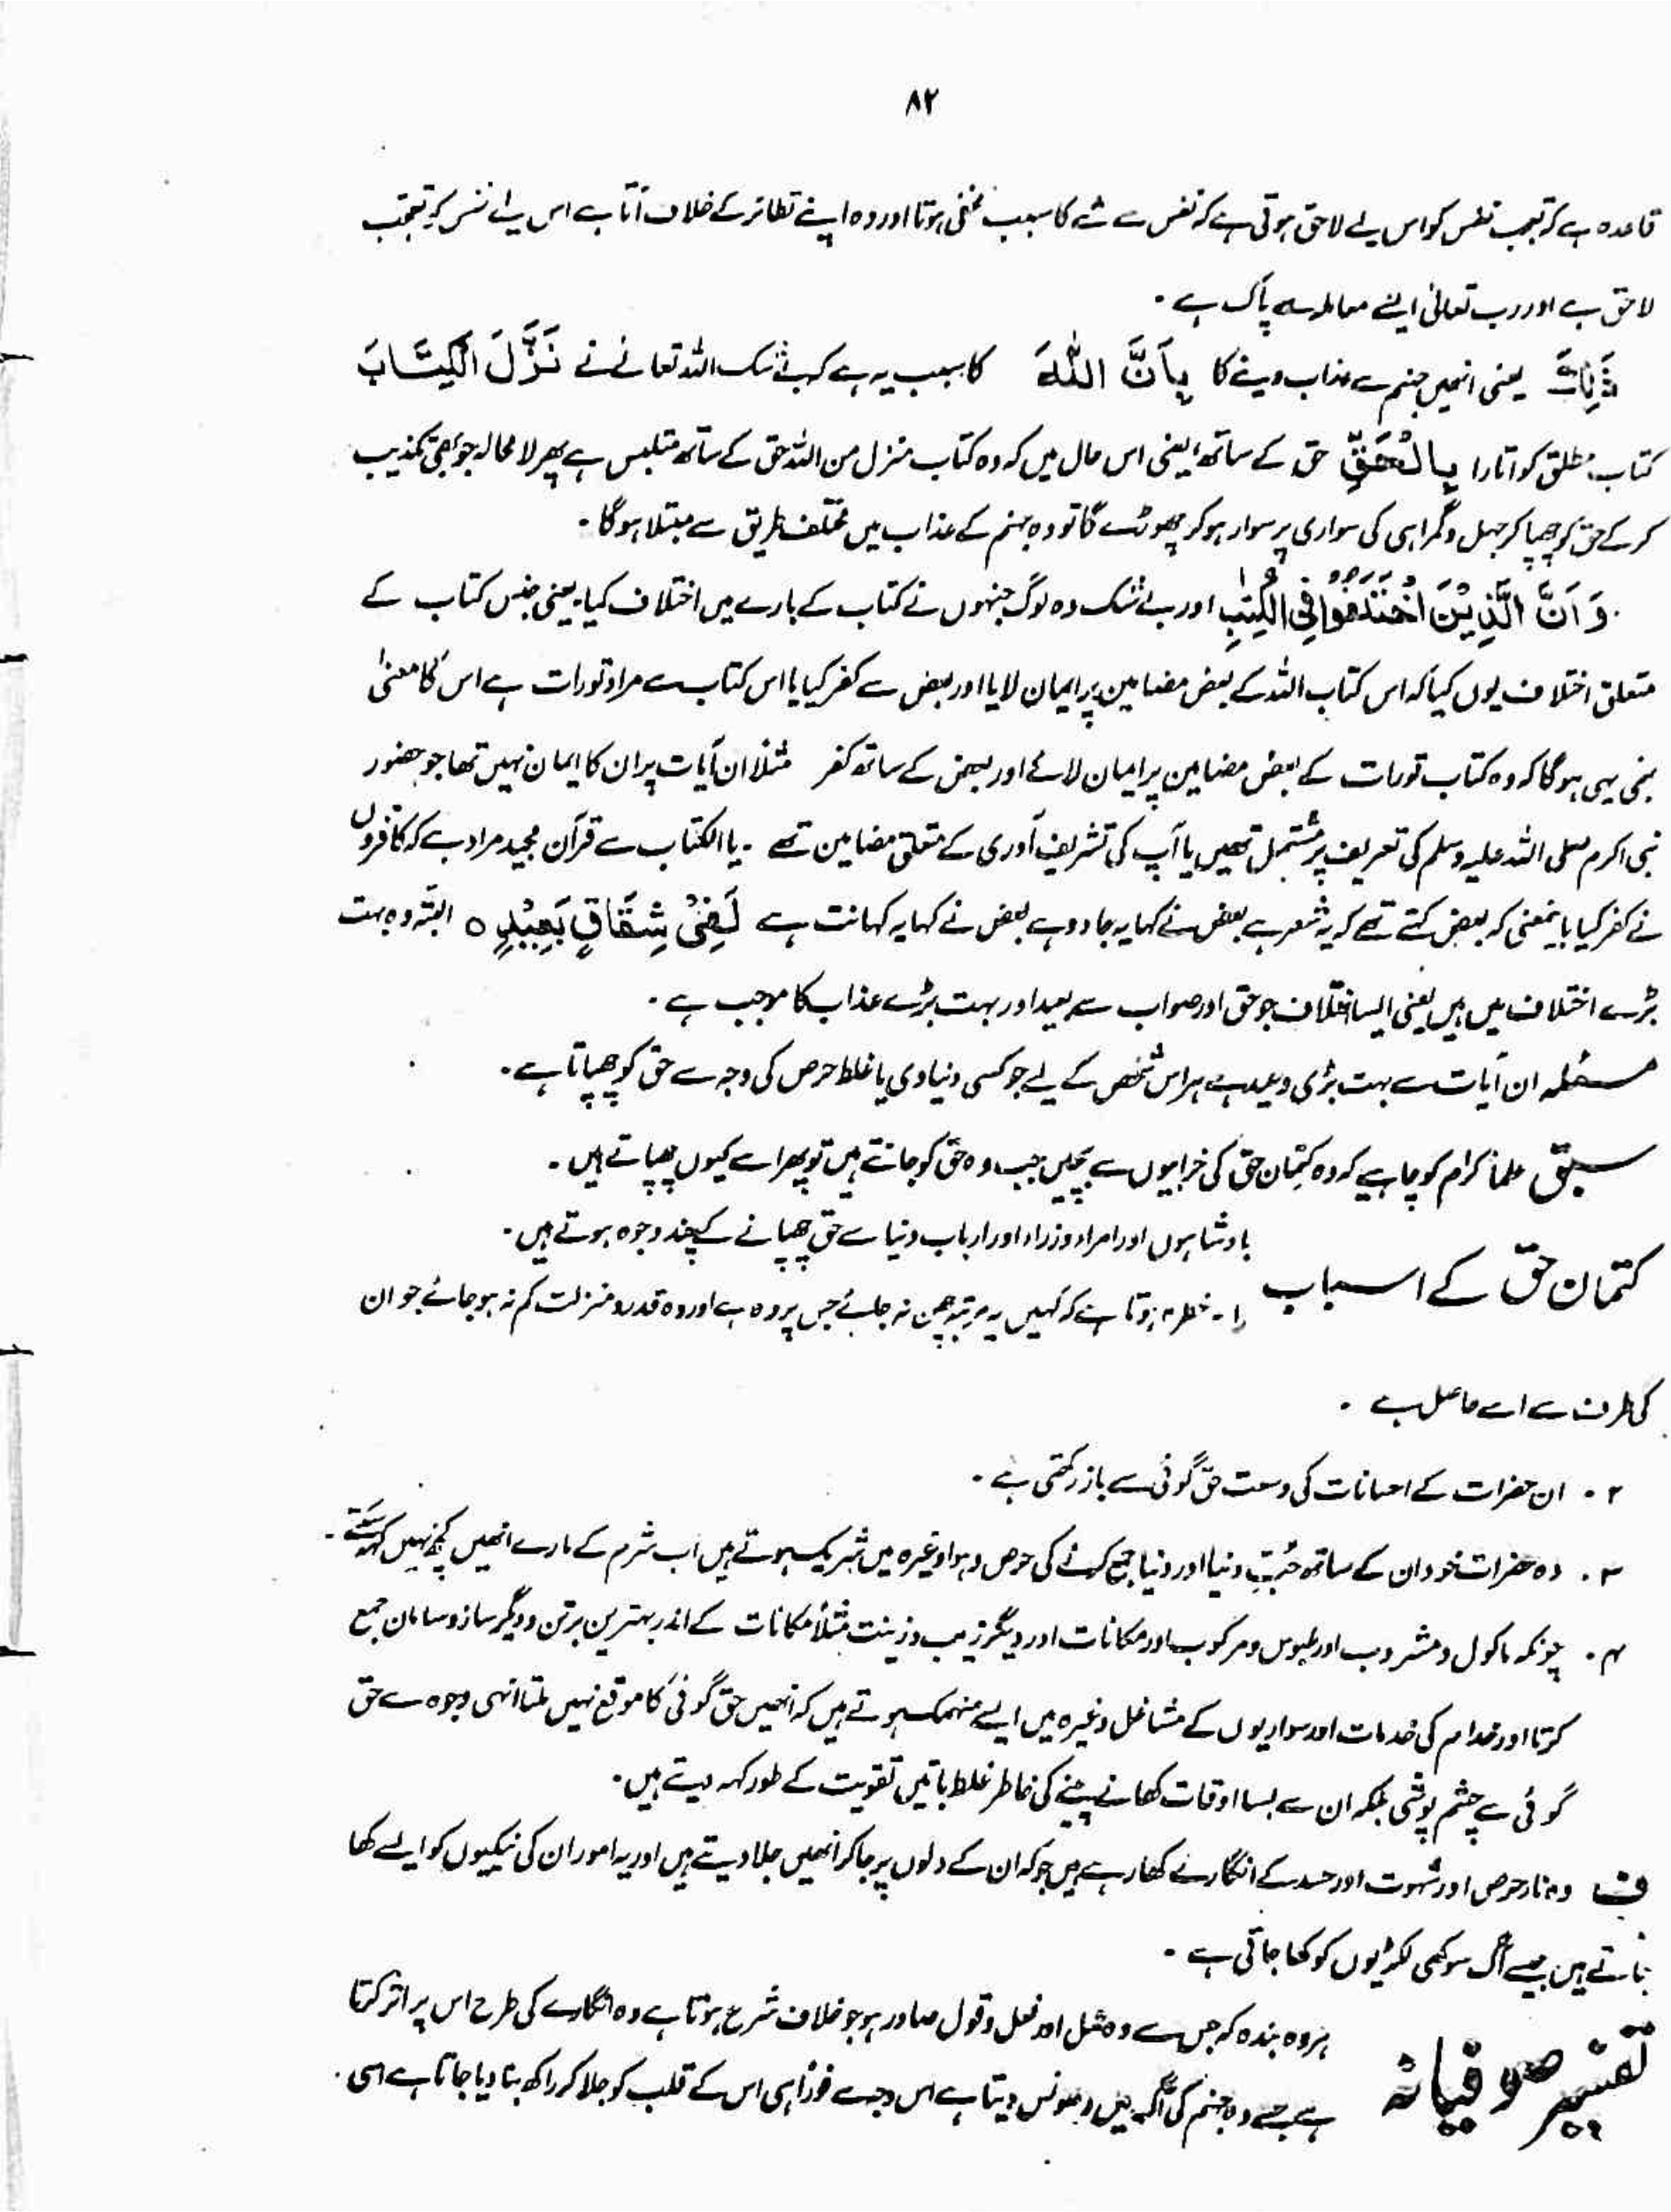 ۸۲
قاعدہ ہے کہ تعجب نفس کو اس لیے لاحق ہوتی ہے کہ نفس سے شے کا سبب مخفی ہوتا اور وہ اپنے نظائر کے خلاف آتا ہے اس لیے نفس کو تعجب
لاحق ہے اور رب تعالیٰ ایسے معاملہ سے پاک ہے ۔
ذٰلِكَ یعنی انہیں جہنم سے عذاب دینے کا بِاَنَّ اللّٰهَ کا سبب یہ ہے کہ بے شک اللہ تعالےٰ نے نَزَّلَ الْكِتَابَ
کتاب مطلق کو اتارا بِالْحَقِّ حق کے ساتھ یعنی اس حال میں کہ وہ کتاب منزل من اللہ حق کے ساتھ متلبس ہے پھر لا محالہ جو بھی تکذیب
کر کے حق کو چھپا کر جہل و گمراہی کی سواری پر سوار ہو کر چھوڑے گا تو وہ جہنم کے عذاب میں مختلف طریق سے مبتلا ہو گا ۔
وَ اَنَّ الَّذِيْنَ اخْتَلَفُوْا فِي الْكِتٰبِ اور بے شک وہ لوگ جنہوں نے کتاب کے بارے میں اختلاف کیا۔ یعنی جنس کتاب کے
متعلق اختلاف یوں کیا کہ اس کتاب اللہ کے بعض مضامین پر ایمان لایا اور بعض سے کفر کیا یا اس کتاب سے مراد تورات ہے اس کا معنیٰ
بھی یہی ہو گا کہ وہ کتاب تورات کے بعض مضامین پر ایمان لائے اور بعض کے ساتھ کفر مثلاً ان آیات پر ان کا ایمان نہیں تھا جو حضور
نبی اکرم صلی اللہ علیہ وسلم کی تعریف پر مشتمل تھیں یا آپ کی تشریف آوری کے متعلق مضامین تھے ۔ یا الکتاب سے قرآن مجید مراد ہے کہ کافروں
نے کفر کیا بایمعنی کہ بعض کہتے تھے کہ یہ شعر ہے بعض نے کہا یہ جادو ہے بعض نے کہا یہ کہانت ہے لَفِيْ شِقَاقٍ بَعِيْدٍ ۝ البتہ وہ بہت
بڑے اختلاف میں ہیں یعنی ایسا اختلاف جو حق اور صواب سے بعید اور بہت بڑے عذاب کا موجب ہے ۔
مسئلہ ان آیات سے بہت بڑی وعید ہے ہر اس شخص کے لیے جو کسی دنیاوی یا غلط حرص کی وجہ سے حق کو چھپاتا ہے ۔
سبق علماٴ کرام کو چاہیے کہ وہ کتمان حق کی خرابیوں سے بچیں جب وہ حق کو جانتے ہیں تو پھر اسے کیوں چھپاتے ہیں ۔
کتمان حق کے اسباب بادشاہوں اور امراء وزراء اور ارباب دنیا سے حق چھپانے کے چند وجوہ ہوتے ہیں ۔
۱ ۔ خطرہ ہوتا ہے کہ کہیں یہ مرتبہ چھن نہ جائے جس پر وہ ہے اور وہ قدر و منزلت کم نہ ہو جائے جو ان
کی طرف سے اسے حاصل ہے ۔
۲ ۔ ان حضرات کے احسانات کی وسعت حق گوئی سے باز رکھتی ہے ۔
۳ ۔ وہ حضرات خود ان کے ساتھ حُبِّ دنیا اور دنیا جمع کرنے کی حرص و ہوا وغیرہ میں شریک ہوتے ہیں اب شرم کے مارے انھیں کچھ نہیں کہہ سکتے ۔
۴ ۔ چونکہ ماکول و مشروب اور ملبوس و مرکوب اور مکانات اور دیگر زیب و زینت مثلاً مکانات کے اندر بہترین برتن و دیگر ساز و سامان جمع
کرتا اور خدام کی خدمات اور سواریوں کے مشاغل وغیرہ میں ایسے منہمک ہوتے ہیں کہ انھیں حق گوئی کا موقع نہیں ملتا انہی وجوہ سے حق
گوئی سے چشم پوشی بلکہ ان سے بسا اوقات کھانے پینے کی خاطر غلط باتیں تقویت کے طور کہہ دیتے ہیں ۔
ف وہ نار حرص اور شہوت اور حسد کے انگارے کھا رہے ہیں جو کہ ان کے دلوں پر جا کر انھیں جلا دیتے ہیں اور یہ امور ان کی نیکیوں کو ایسے کھا
جاتے ہیں جیسے آگ سوکھی لکڑیوں کو کھا جاتی ہے ۔
تفسیر صوفیانہ ہر وہ بندہ کہ جس سے وہ عمل اور فعل و قول صادر ہو جو خلاف شرع ہوتا ہے وہ انگارے کی طرح اس پر اثر کرتا
ہے جسے وہ جہنم کی آگ میں دھونس دیتا ہے اس وجہ سے فوراً ہی اس کے قلب کو جلا کر راکھ بنا دیا جاتا ہے اسی ۔